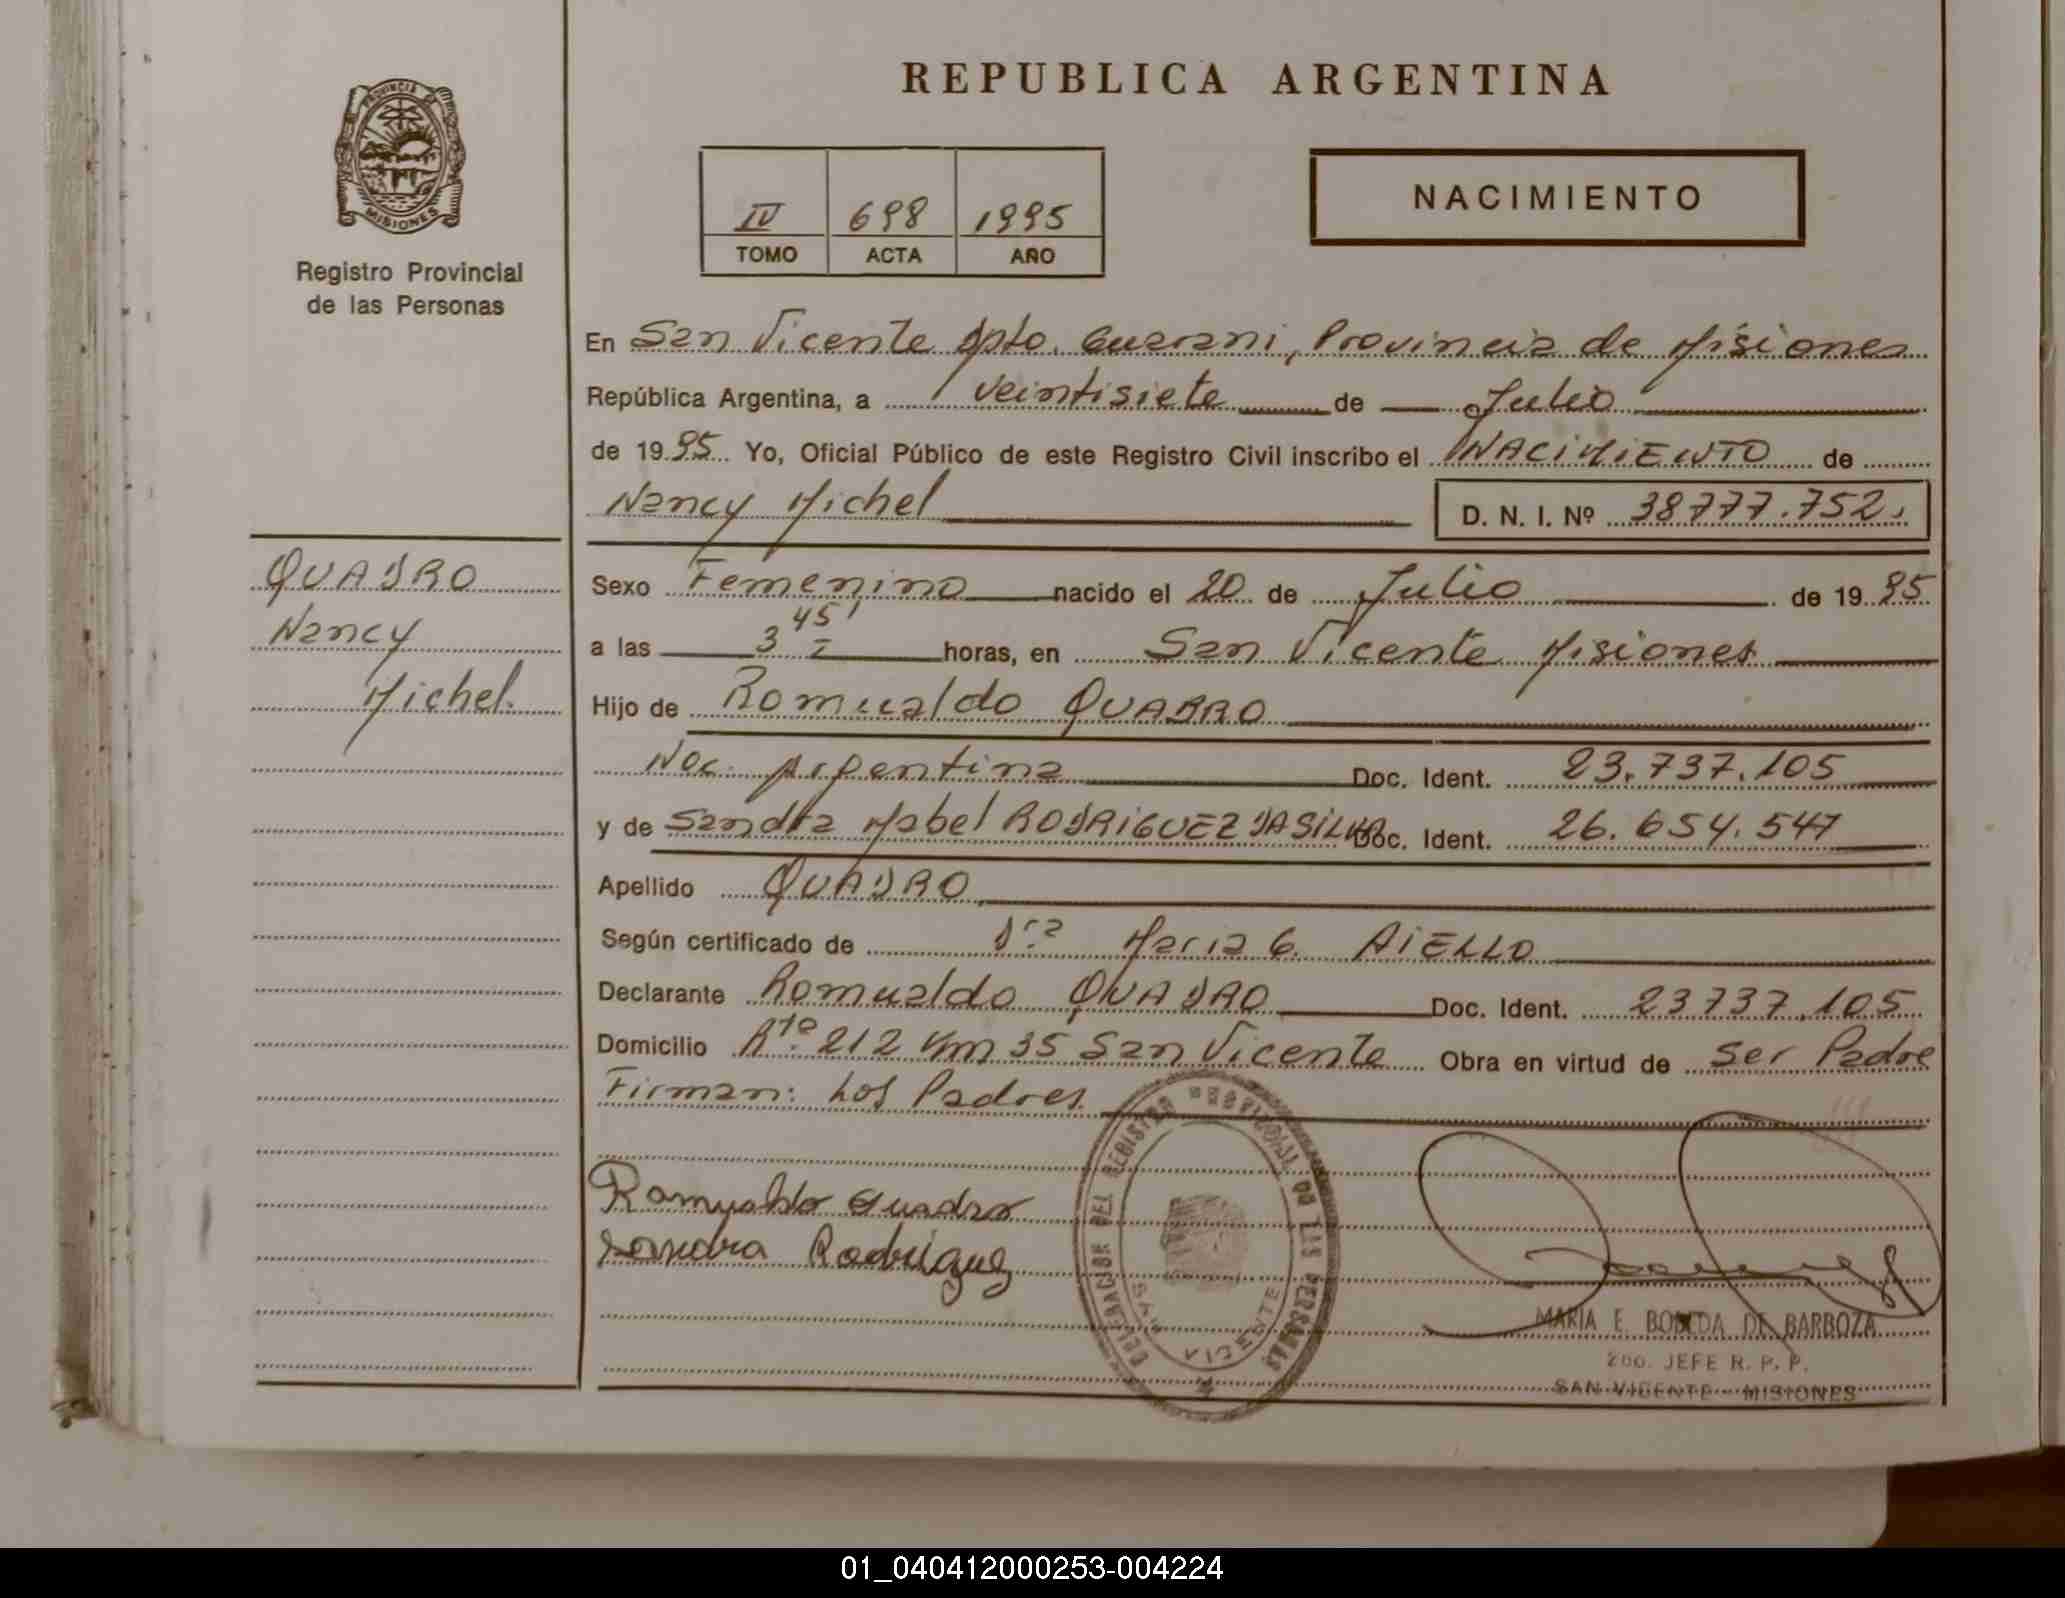 REPUBLICA ARGENTINA
PROVINCIA DE MISIONES
Registro Provincial
de las Personas
IV 698 1995
TOMO ACTA AÑO
NACIMIENTO
En San Vicente Dpto. Guarani, Provincia de Misiones
República Argentina, a veintisiete de Julio
de 1995 Yo, Oficial Público de este Registro Civil inscribo el NACIMIENTO de
Nancy Michel D. N. I. Nº 38777.752.
QUADRO
Nancy
Michel.
Sexo Femenino nacido el 20 de Julio de 1995
a las 3 45' horas, en San Vicente Misiones
Hijo de Romualdo QUADRO
Nac. Argentina Doc. Ident. 23.737.105
y de Sandra Mabel RODRIGUEZ DA SILVA Doc. Ident. 26.654.547
Apellido QUADRO
Según certificado de Dra Maria G. AIELLO
Declarante Romualdo QUADRO Doc. Ident. 23737.105
Domicilio Rta 212 Km 35 San Vicente Obra en virtud de ser Padre
Firman: Los Padres
Romualdo Quadro
Sandra Rodriguez
DELEGACION DEL REGISTRO PROVINCIAL DE LAS PERSONAS
SAN VICENTE
MARIA E. BOBEDA DE BARBOZA
2do. JEFE R. P. P.
SAN VICENTE - MISIONES
01_040412000253-004224